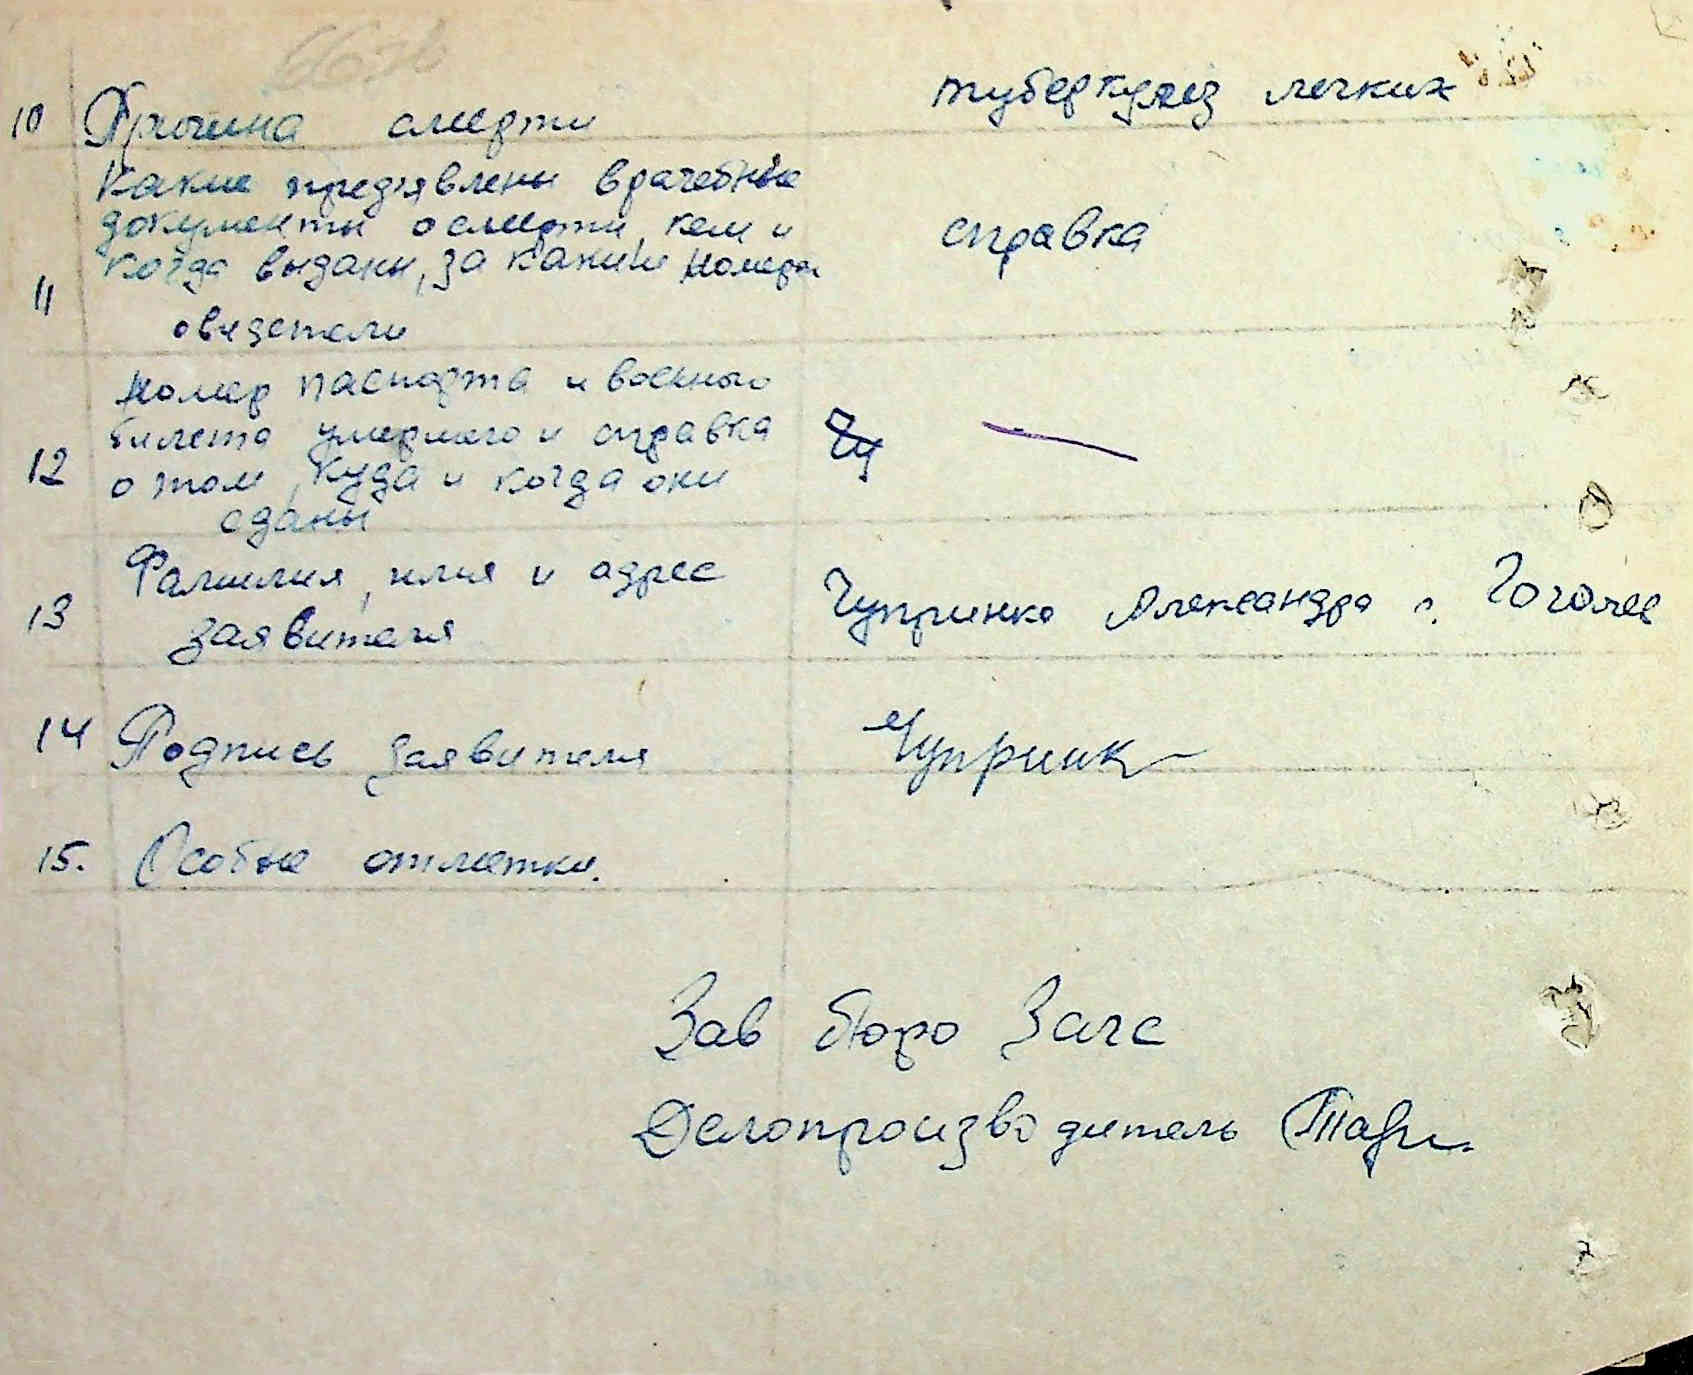 10 Причина смерти туберкулез легких
Какие пред'явлены врачебные
документы о смерти, кем и
справка
когда выданы, за каким номером
11
свидетели
Номер паспорта и военного
билета умершего и справка
12 о том, куда и когда они
сданы
Фамилия, имя и адрес
13 заявителя
Чупринко Александра с. Гоголев
14 Подпись заявителя Чупринк
15. Особые отметки.
Зав бюро Загс
Делопроизводитель